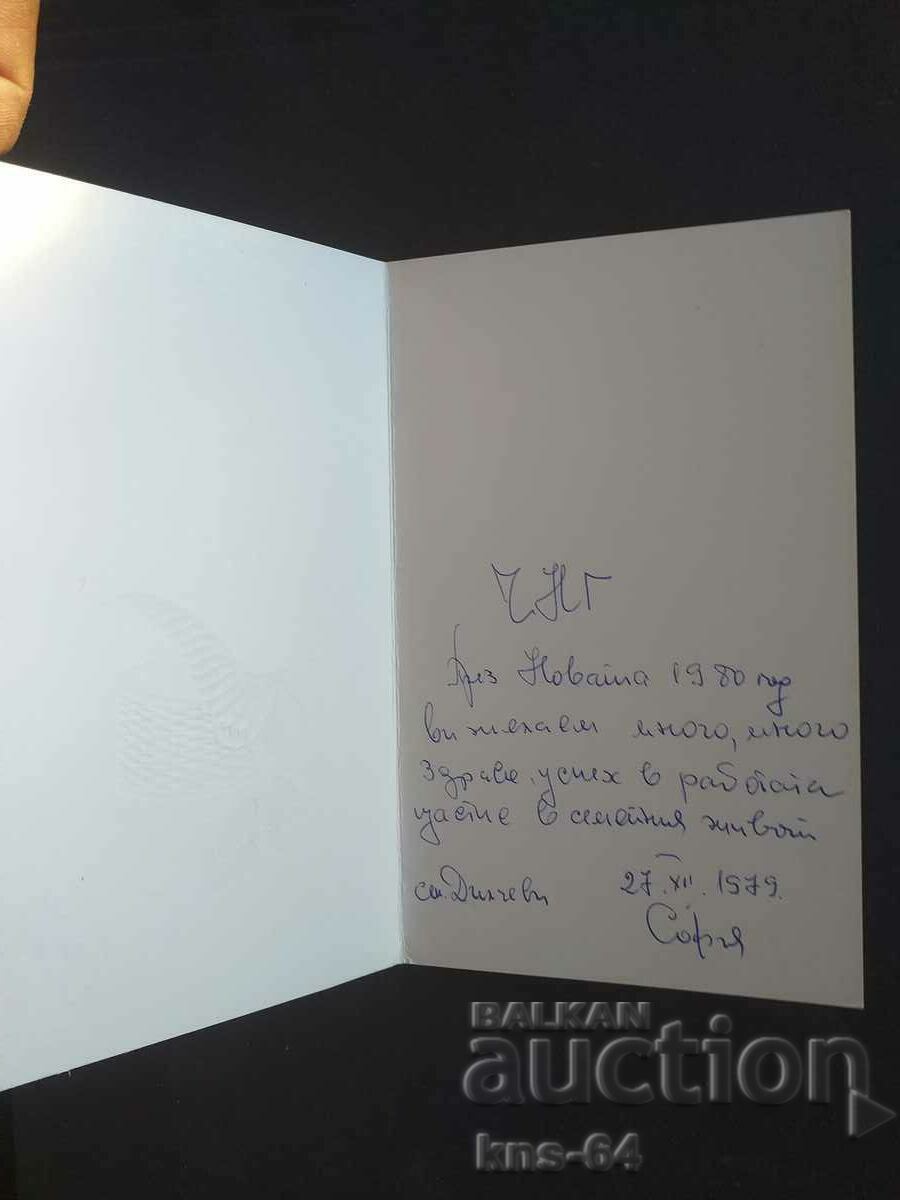 ЧНГ
През Новата 1980 год
ви желаем много, много
здраве, успех в работата
щастие в семейния живот
27.XII.1979.
сем. Дилчеви
София
BALKAN
auction
kns-64